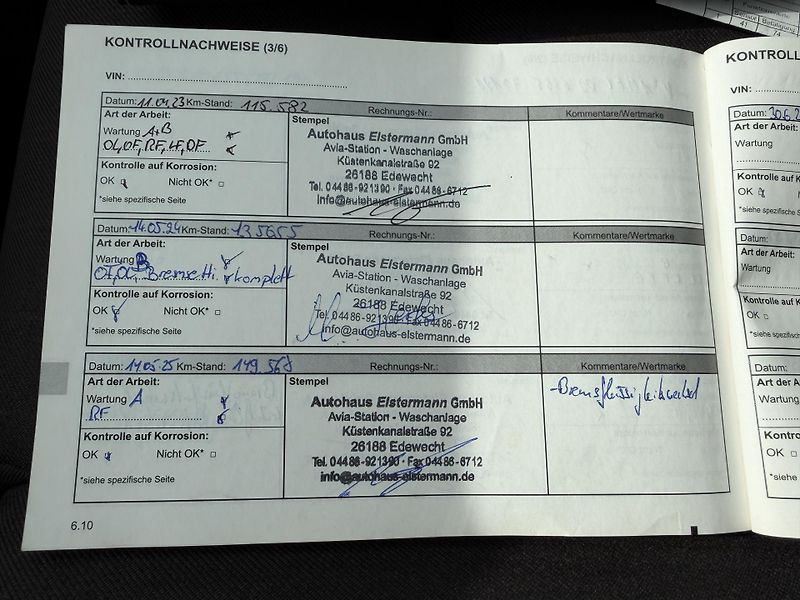 KONTROLLNACHWEISE (3/6)
VIN:
Datum: 11.04.23 Km-Stand: 115.582 Rechnungs-Nr.: Kommentare/Wertmarke
Art der Arbeit: Stempel
Wartung A+B
Öl, OF, RF, LF, DF
Kontrolle auf Korrosion:
OK Nicht OK*
*siehe spezifische Seite
Autohaus Elstermann GmbH
Avia-Station - Waschanlage
Küstenkanalstraße 92
26188 Edewecht
Tel. 04486-921390 · Fax 04486-6712
info@autohaus-elstermann.de
Datum: 14.05.24 Km-Stand: 135655 Rechnungs-Nr.: Kommentare/Wertmarke
Art der Arbeit: Stempel
Wartung B
komplett
Kontrolle auf Korrosion:
OK Nicht OK*
*siehe spezifische Seite
Autohaus Elstermann GmbH
Avia-Station - Waschanlage
Küstenkanalstraße 92
26188 Edewecht
Tel. 04486-921390 · Fax 04486-6712
info@autohaus-elstermann.de
Datum: 14.05.25 Km-Stand: 149.568 Rechnungs-Nr.: Kommentare/Wertmarke
Art der Arbeit: Stempel
Wartung A
RF
Kontrolle auf Korrosion:
OK Nicht OK*
*siehe spezifische Seite
Autohaus Elstermann GmbH
Avia-Station - Waschanlage
Küstenkanalstraße 92
26188 Edewecht
Tel. 04486-921390 · Fax 04486-6712
info@autohaus-elstermann.de
6.10
KONTROLL
VIN:
Datum: 30.6.2
Art der Arbeit:
Wartung
Kontrolle auf K
OK
*siehe spezifische
Datum:
Art der Arbeit:
Wartung
Kontrolle auf K
OK
*siehe spezifische
Datum:
Art der Arbeit:
Wartung
Kontrolle
OK
*siehe spezifische